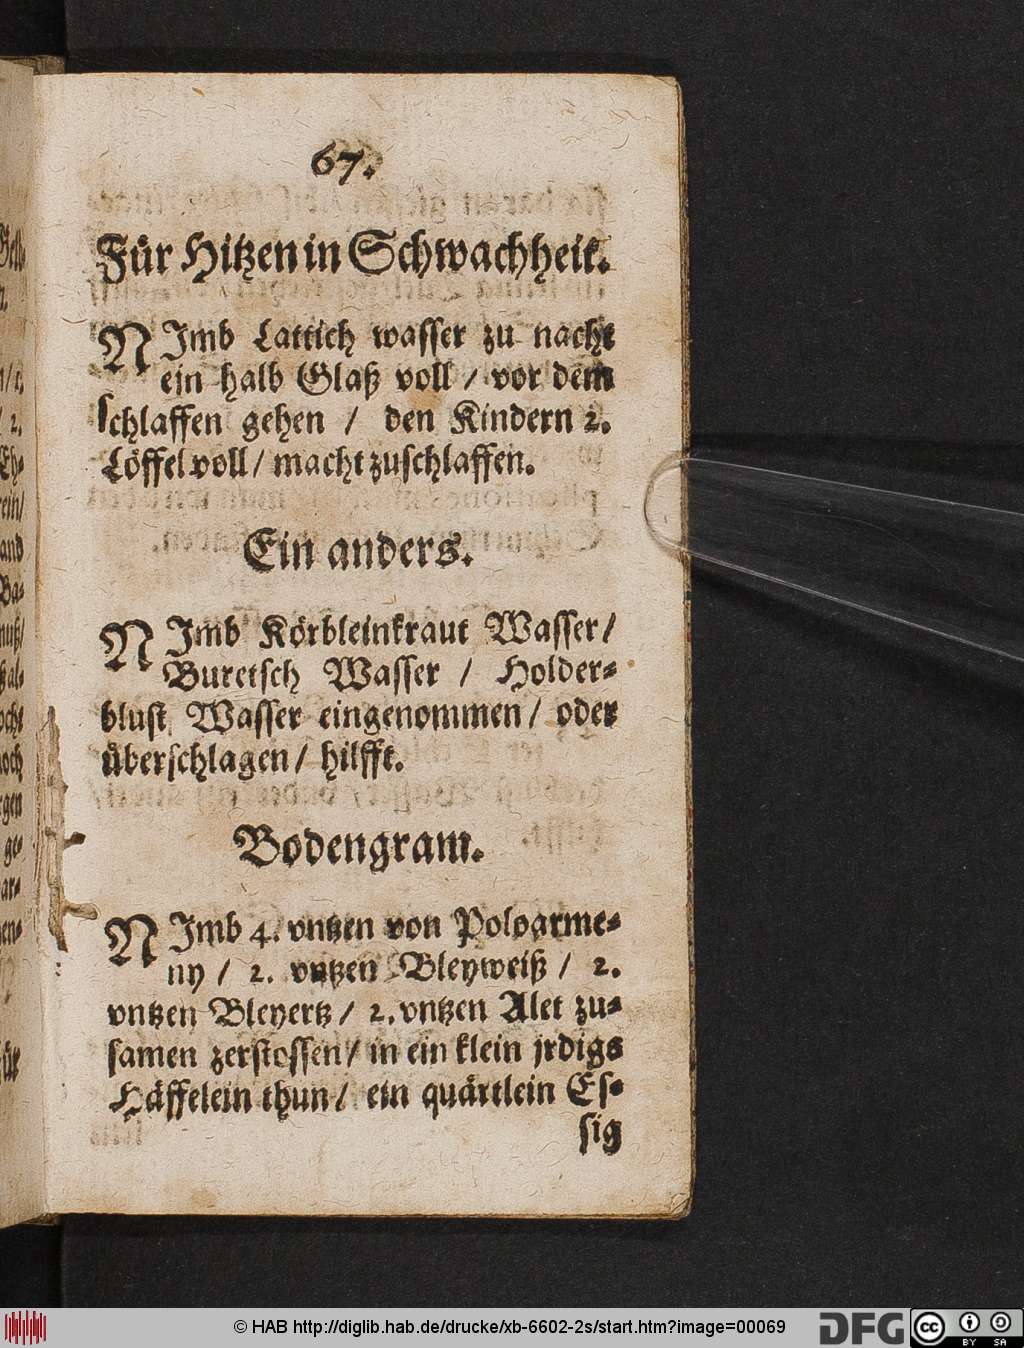 67.
Für Hitzen in Schwachheit.
NJmb Lattich wasser zu nacht
ein halb Glaß voll / vor dem
schlaffen gehen / den Kindern 2.
Löffel voll / macht zuschlaffen.
Ein anders.
NJmb Körbleinkraut Wasser /
Buretsch Wasser / Holder-
blust Wasser eingenommen / oder
überschlagen / hilfft.
Bodengram.
NJmb 4. vntzen von Poloarme-
ny / 2. vntzen Bleyweiß / 2.
vntzen Bleyertz / 2. vntzen Alet zu-
samen zerstossen / in ein klein jrdigs
Häffelein thun / ein quärtlein Es-
sig
© HAB http://diglib.hab.de/drucke/xb-6602-2s/start.htm?image=00069
DFG
cc BY SA